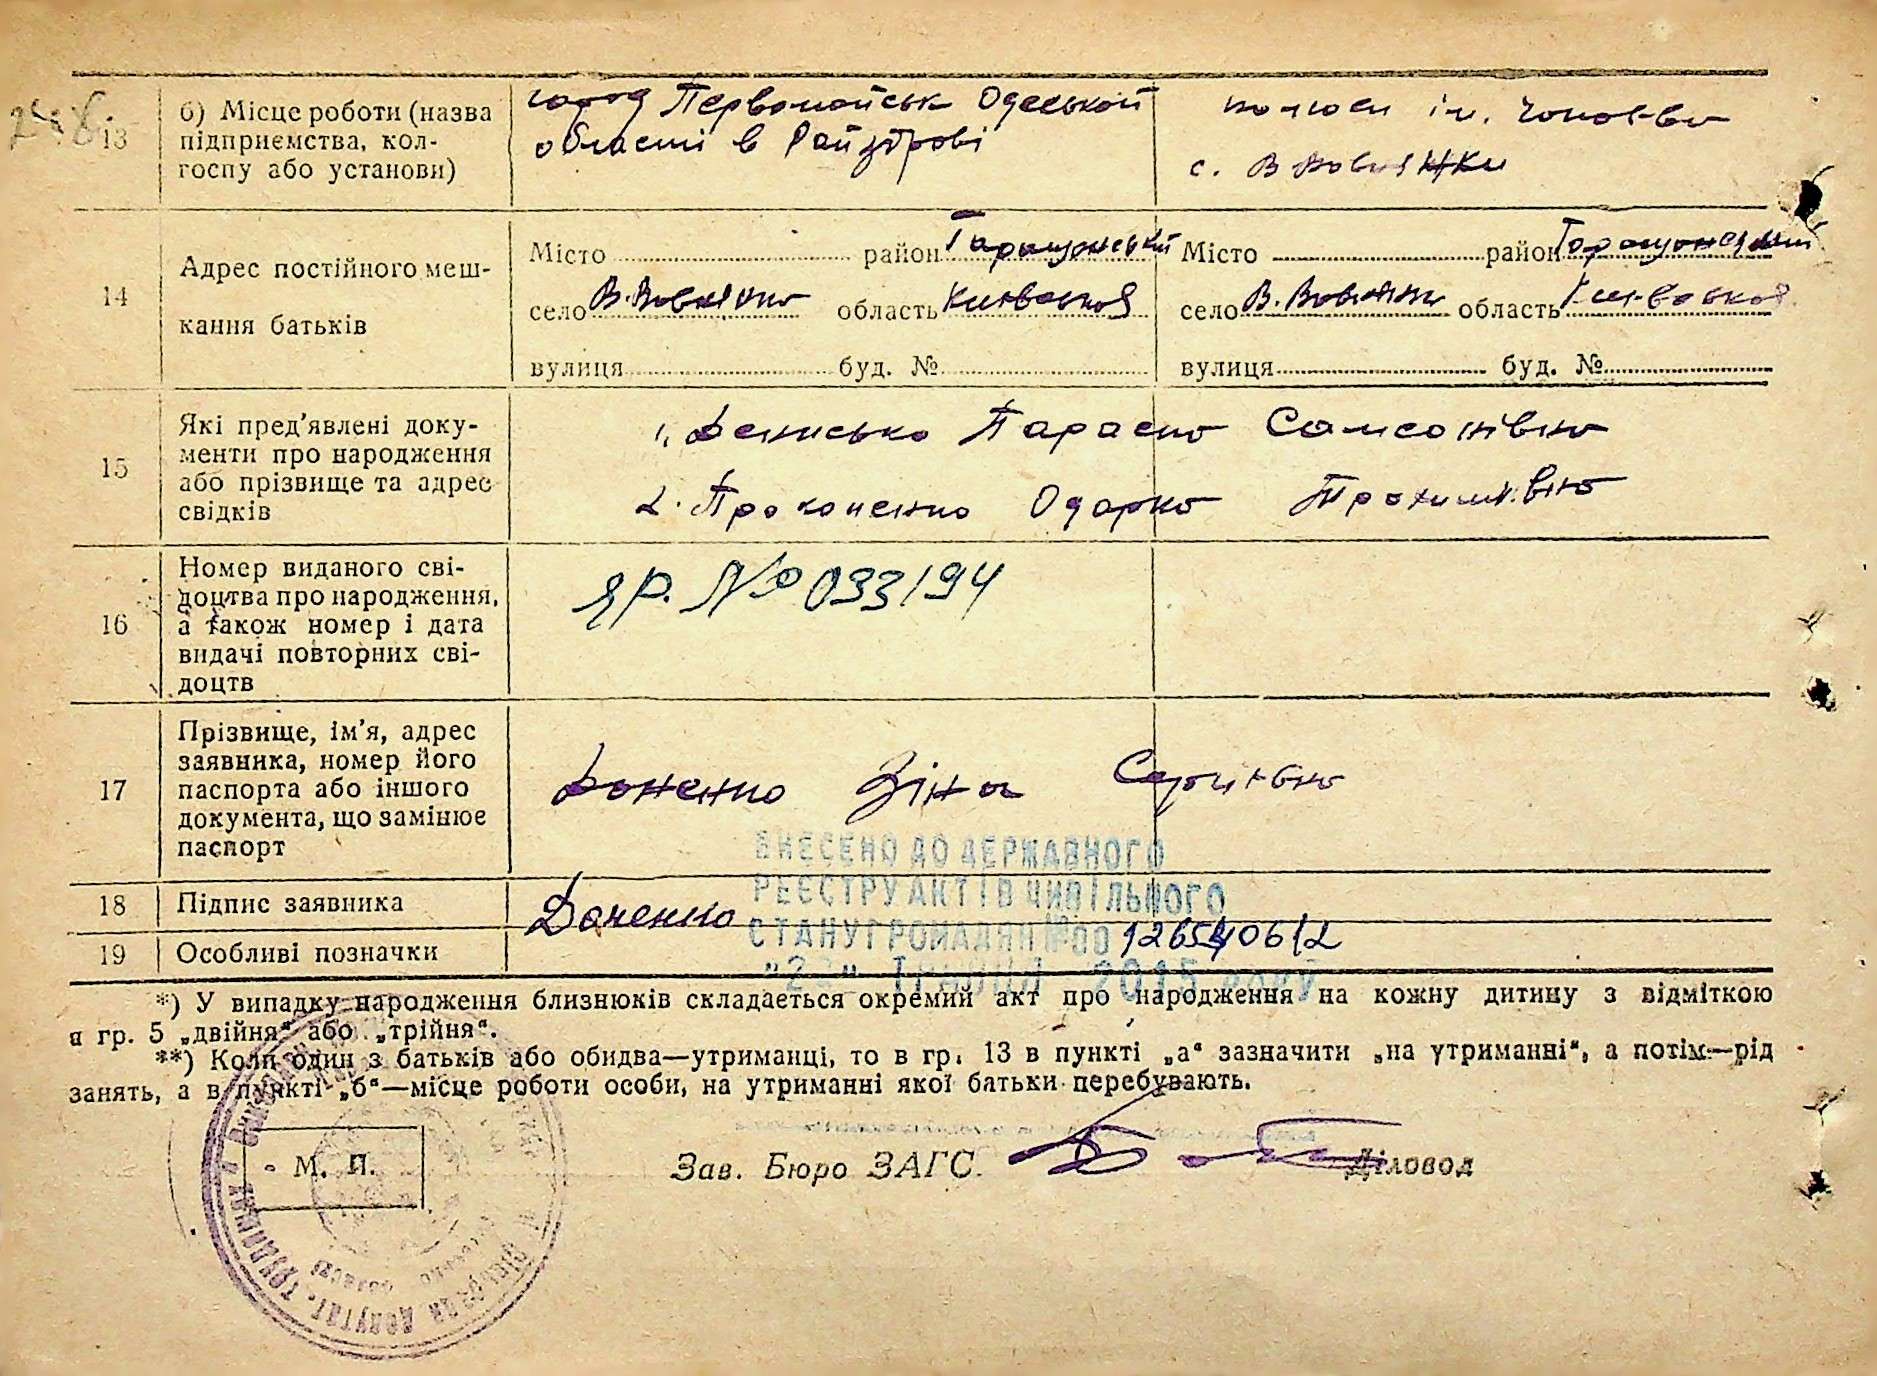 13
б) Місце роботи (назва
підприємства, кол-
госпу або установи)
город Первомайськ Одеськой
області в Райздрові
колгосп ім.
с. В
14
Адрес постійного меш-
кання батьків
Місто район Таращанський
село В. Вовнянка область Київська
вулиця буд. №
Місто район Таращанський
село В. Вовнянка область Київська
вулиця буд. №
15
Які пред'явлені доку-
менти про народження
або прізвище та адрес
свідків
1. Денисько Параска Самсонівна
2. Прокопенко Одарка Трохимівна
16
Номер виданого сві-
доцтва про народження,
а також номер і дата
видачі повторних сві-
доцтв
ЯР. № 033194
17
Прізвище, ім'я, адрес
заявника, номер його
паспорта або іншого
документа, що замінює
паспорт
Доненко Зіна
18
Підпис заявника
Доненко
19
Особливі позначки
ВНЕСЕНО ДО ДЕРЖАВНОГО
РЕЄСТРУ АКТІВ ЦИВІЛЬНОГО
СТАНУ ГРОМАДЯН №00
ТРАВНЯ 2015 року
*) У випадку народження близнюків складається окремий акт про народження на кожну дитину з відміткою
в гр. 5 „двійня“ або „трійня“.
**) Коли один з батьків або обидва—утриманці, то в гр. 13 в пункті „а“ зазначити „на утриманні“, а потім—рід
занять, а в пункті „б“—місце роботи особи, на утриманні якої батьки перебувають.
М. П.
Зав. Бюро ЗАГС.
Діловод